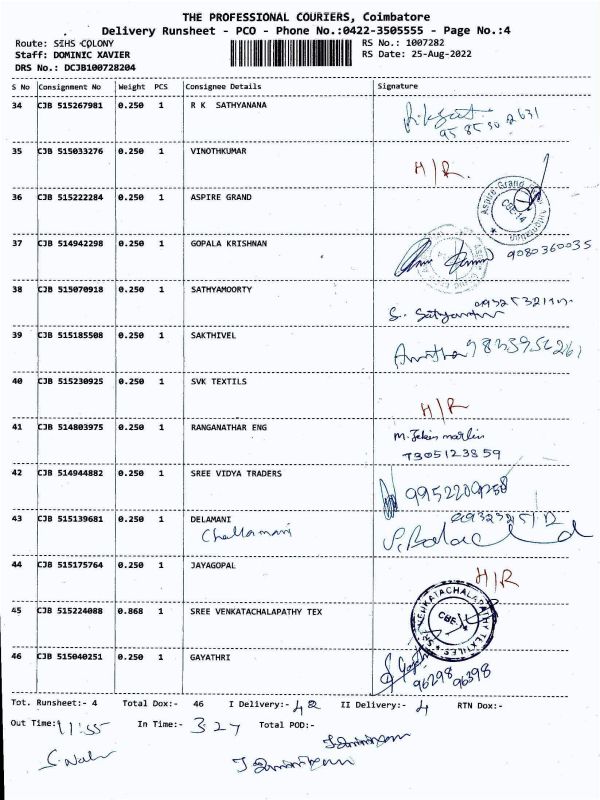 THE PROFESSIONAL COURIERS, Coimbatore
Delivery Runsheet - PCO - Phone No.:0422-3505555 - Page No.:4
Route: SIHS COLONY RS No.: 1007282
Staff: DOMINIC XAVIER RS Date: 25-Aug-2022
DRS No.: DCJB100728204
S No Consignment No Weight PCS Consignee Details Signature
34 CJB 515267981 0.250 1 R K SATHYANANA
35 CJB 515033276 0.250 1 VINOTHKUMAR
H/R.
36 CJB 515222284 0.250 1 ASPIRE GRAND
Aspire Grand
CBE-14
37 CJB 514942298 0.250 1 GOPALA KRISHNAN
9080360035
38 CJB 515070918 0.250 1 SATHYAMOORTY
39 CJB 515185508 0.250 1 SAKTHIVEL
40 CJB 515230925 0.250 1 SVK TEXTILS
H/R
41 CJB 514803975 0.250 1 RANGANATHAR ENG
7305123859
42 CJB 514944882 0.250 1 SREE VIDYA TRADERS
43 CJB 515139681 0.250 1 DELAMANI
Chellamani
44 CJB 515175764 0.250 1 JAYAGOPAL
H/R
45 CJB 515224088 0.868 1 SREE VENKATACHALAPATHY TEX
SRI VENKATACHALAPATHY TEXTILES
CBE
46 CJB 515040251 0.250 1 GAYATHRI
96298 96398
Tot. Runsheet:- 4 Total Dox:- 46 I Delivery:- 42 II Delivery:- 4 RTN Dox:-
Out Time: 11:55 In Time:- 3 27 Total POD:-